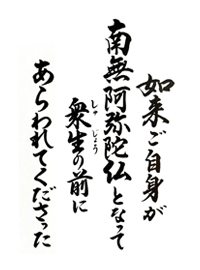 如来ご自身が
南無阿弥陀仏となって
衆生の前に
しゅじょう
あらわれてくださった